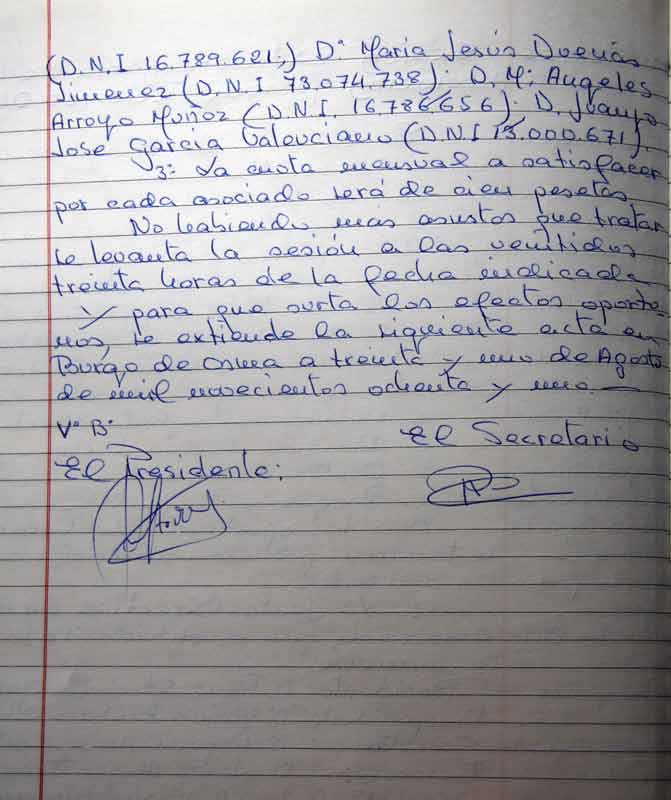 (D.N.I 16.789.621;) Dª Maria Jesús Dueñas
Jimenez (D.N.I 73.074.738). D. Mª Angeles
Arroyo Muñoz (D.N.I. 16.786656). D. Juan
Jose Garcia Valenciano (D.N.I 13.000.671).
3ª La cuota mensual a satisfacer
por cada asociado será de cien pesetas
No habiendo mas asuntos que tratar
se levanta la sesión a las ventidos
treinta horas de la fecha indicada
Y para que surta los efectos oportu-
nos, se extiende la siguiente acta en
Burgo de Osma a treinta y uno de Agosto
de mil novecientos ochenta y uno. —
Vº Bº
El Secretario
El Presidente: